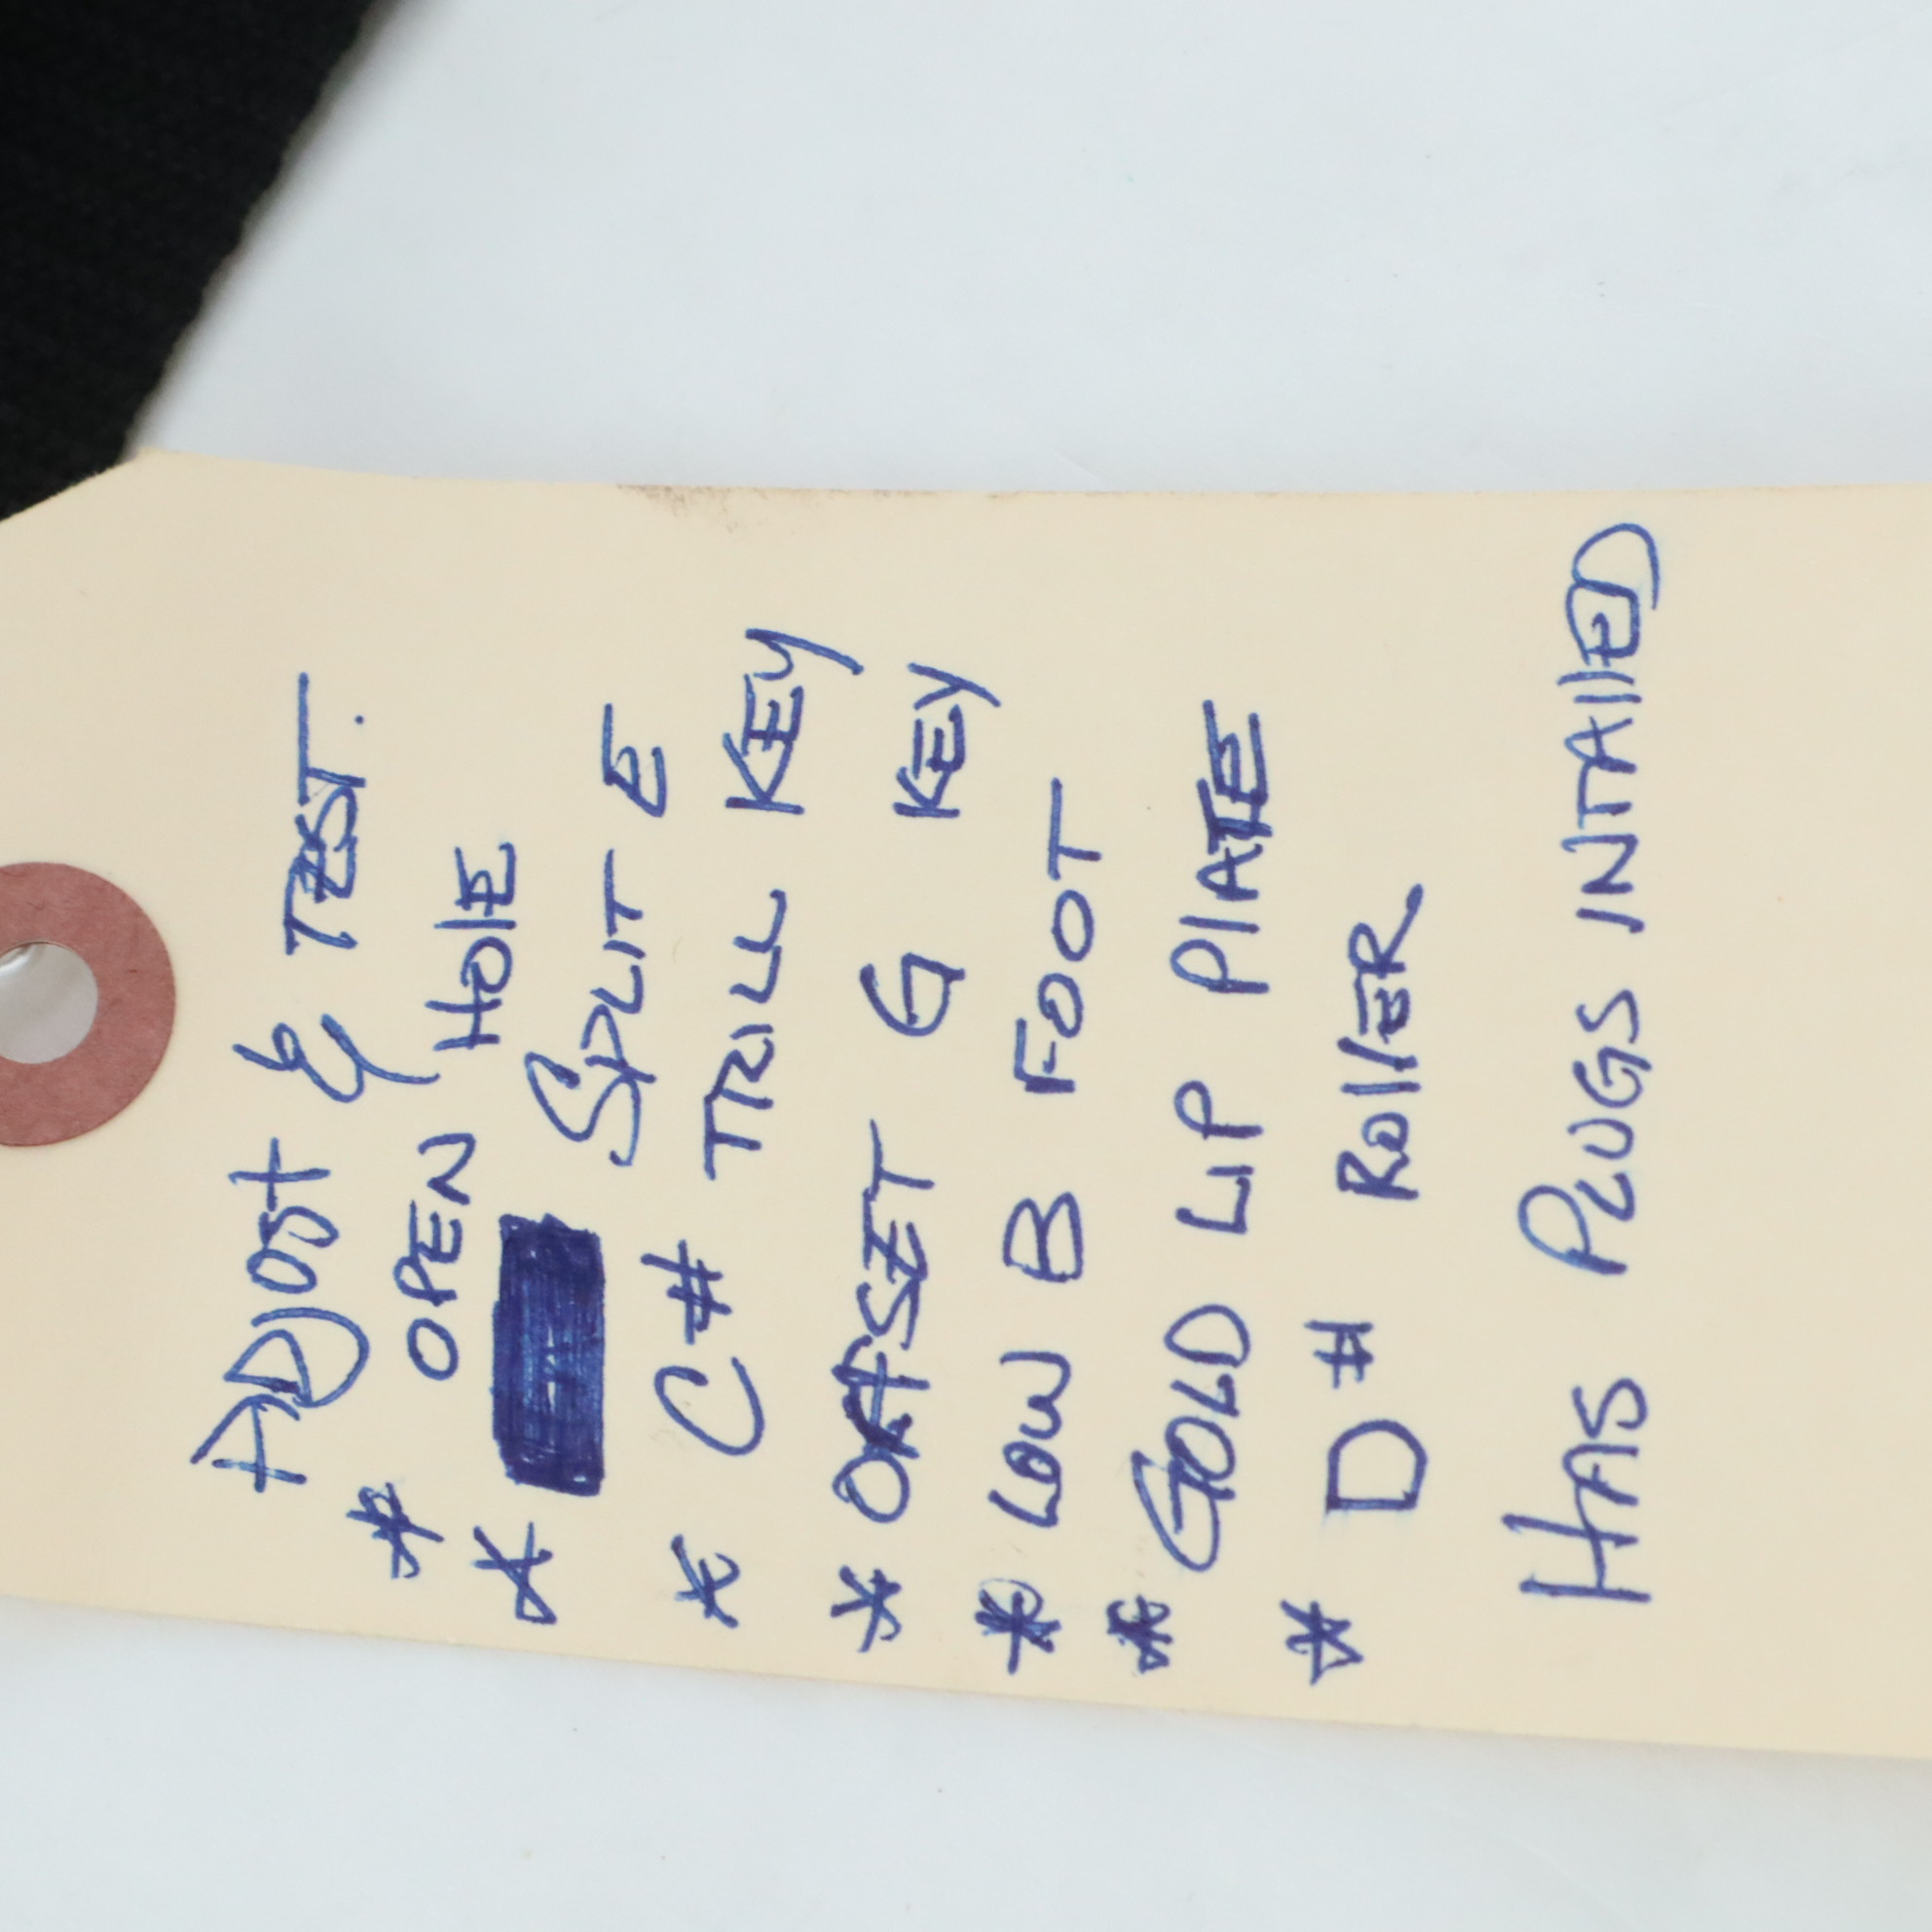 ADJUST & TEST.
* OPEN HOLE
* SPLIT E
* C# TRILL KEY
* OFFSET G KEY
* LOW B FOOT
* GOLD LIP PLATE
* D# ROllER
HAS PLUGS INTAllED